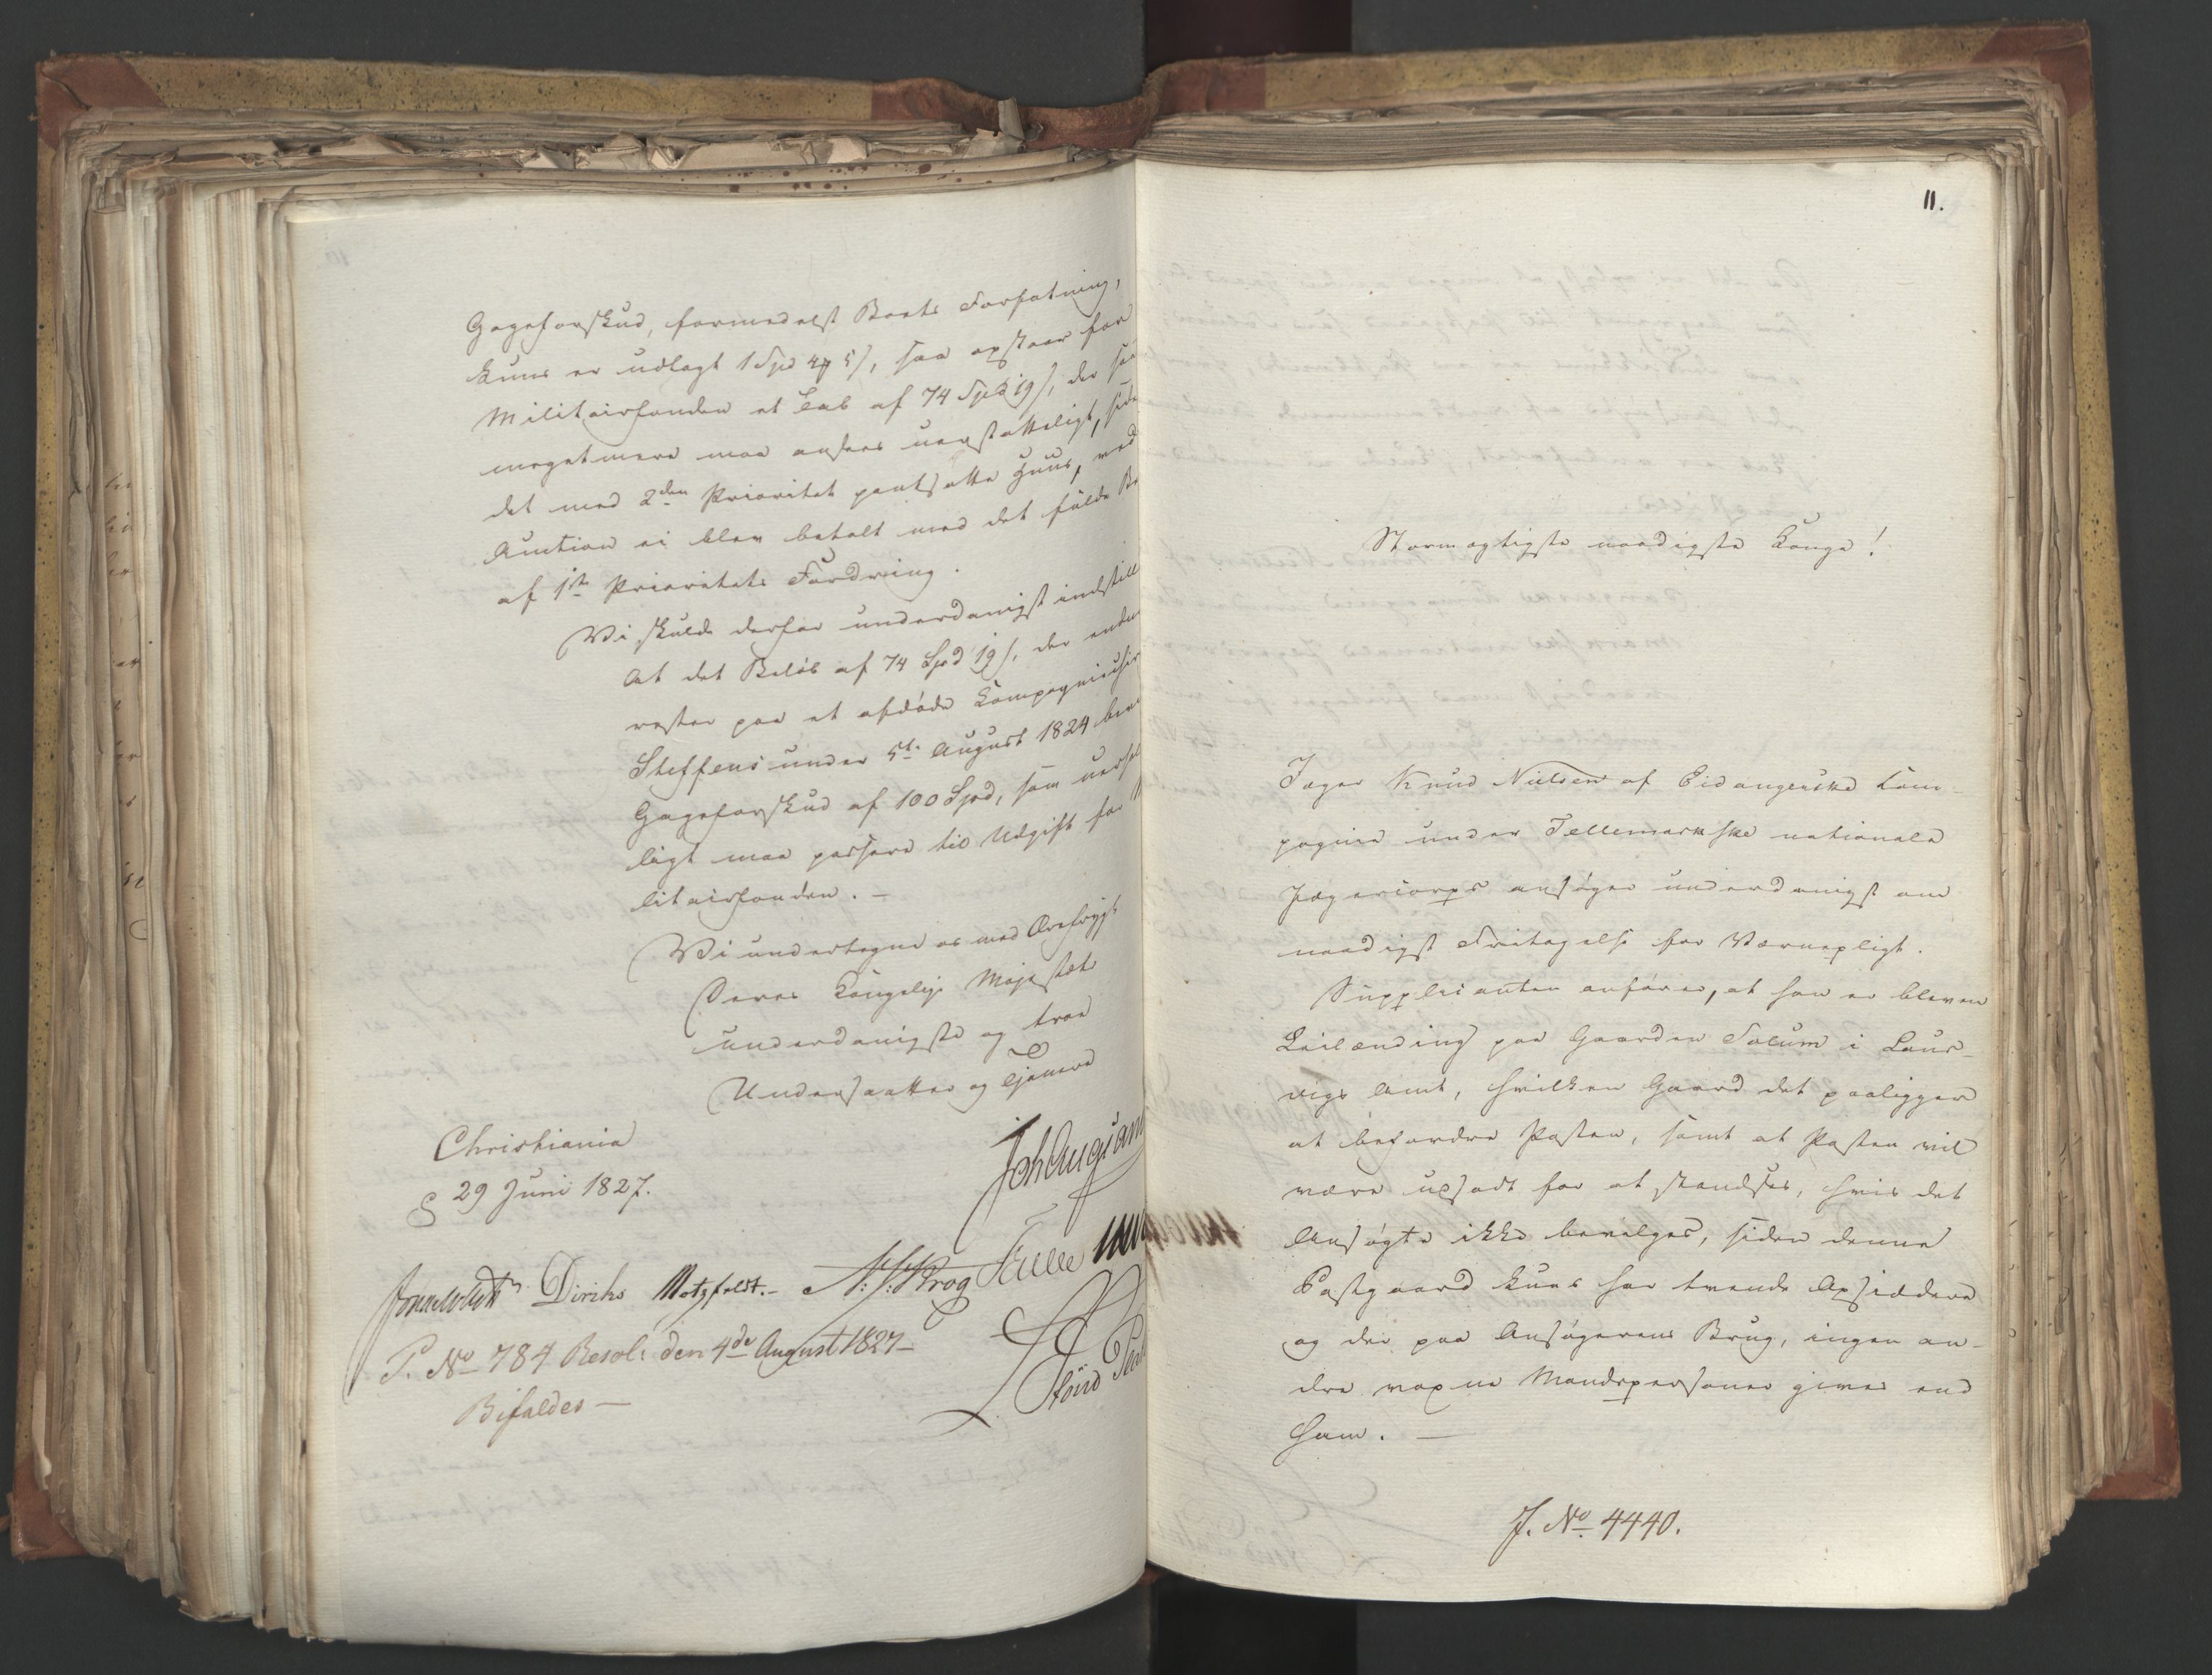 Gageforskud, formedelst Boets Forfatning,
kuns er udlagt 1 Spd 4 ₰ 5 s, saa opstaar for
Militairfonden et Tab af 74 Spd 19 s, der saa
megetmere maa ansees uerstatteligt, side
det med 2den Prioritet pantsatte Huus, ved
Auction ei blev betalt med det fulde Be
af 1ste Prioritets Fordring.
Vi skulde derfor underdanigst indstille
At det Beløb af 74 Spd 19 s, der endnu
rester paa et afdøde Compagniechir
Steffens under 5te August 1824 bev
Gageforskud af 100 Spd, som uerhol
ligt maa passere til Udgift for M
litairfonden. -
Vi undertegne os med Ærefrygt
Deres Kongelige Majestæts
underdanigste og troe
Undersaatter og Tjenere
Christiania
d 29 Juni 1827.
Diriks Motzfeldt. - Krog
P. No 784 Resol: den 4de August 1827 -
Bifaldes -
11.
Stormægtigste naadigste Konge!
Jæger Knud Nielsen af Eidangerske Com-
pagnie under Tellemarkske nationale
Jægercorps ansøger underdanigst om
naadigst Fritagelse for Værnepligt.
Supplicanten anfører, at han er bleven
Leilænding paa Gaarden Solum i Laur-
vigs Amt, hvilken Gaard det paaligger
at befordre Posten, samt at Posten vil
være udsadt for at standses, hvis det
Ansøgte ikke bevilges, siden denne
Postgaard kuns har tvende Opsiddere
og der paa Ansøgerens Brug, ingen an-
dre voxne Mandspersoner gives end
ham. -
J. No 4440.